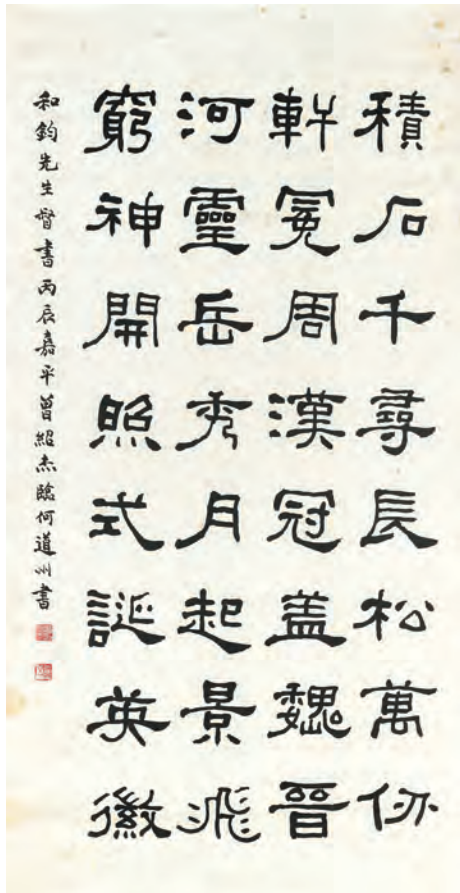 積石千尋長松萬仞
軒冕周漢冠盖魏晉
河靈岳秀月起景飛
窮神開照式誕英徽
和鈞先生督書丙辰嘉平曾紹杰臨何道州書